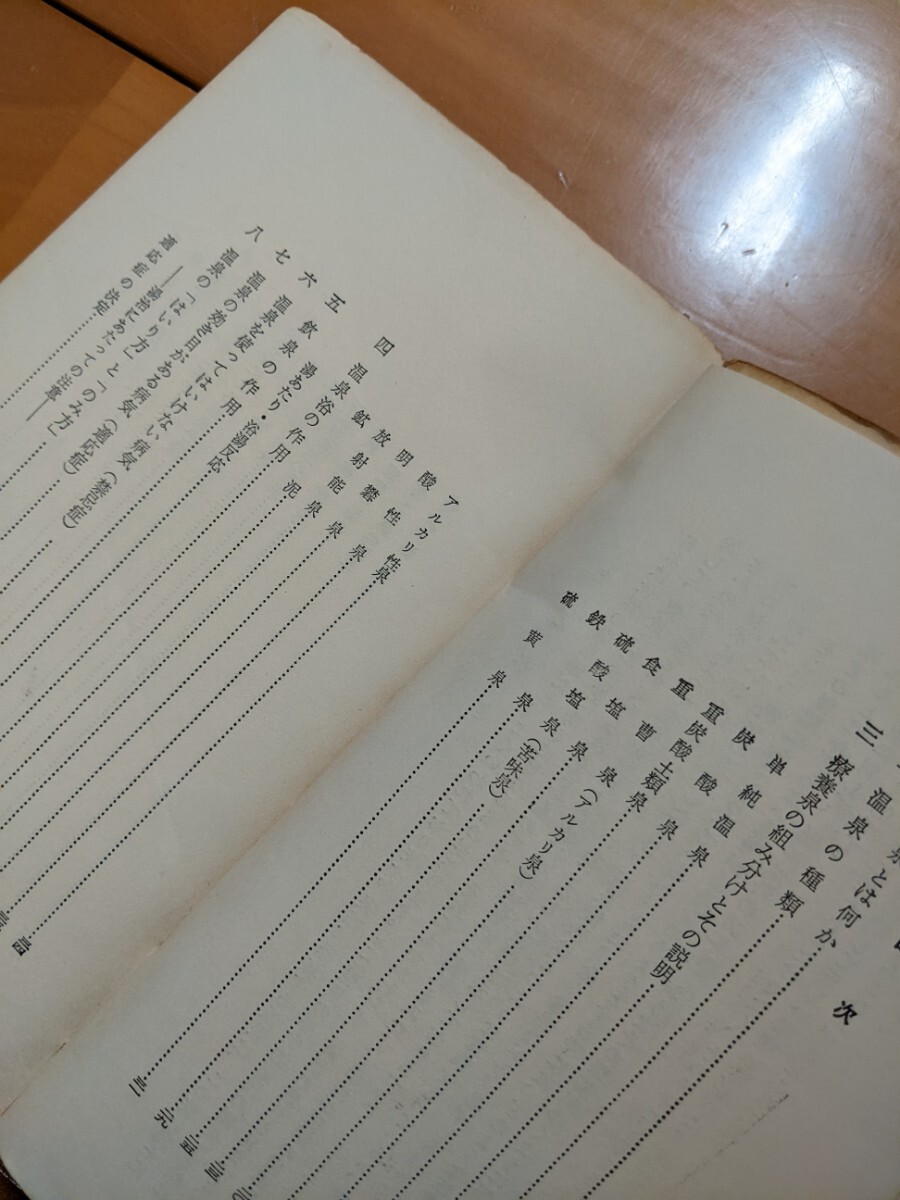 次
泉とは何か
温泉の種類
三 療養泉の組み分けとその説明
単純温泉
炭酸泉
重炭酸土類泉
重曹泉(アルカリ泉)
食塩泉
硫酸塩泉(苦味泉)
鉄泉
硫黄泉
アルカリ性泉
酸性泉
明礬泉
放射能泉
鉱泉泥
四 温泉浴の作用
湯あたり・浴湯反応
五 飲泉の作用
六 温泉を使ってはいけない病気(禁忌症)
七 温泉の効き目がある病気(適応症)
八 温泉の「はいり方」と「のみ方」
――湯治にあたっての注意――
適応症の決定